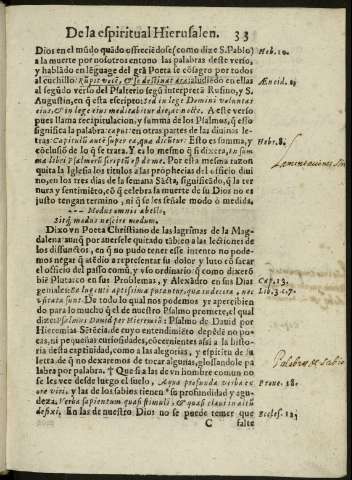 De la espiritual Hierusalen. 33
Dios en el mũdo quãdo offreciẽdose (como dize S. Pablo) Heb. 10.
a la muerte por nosotros entono las palabras deste verso,
y hablãdo en lẽguage del grã Poeta se cõsagro por todos
al cuchillo: aludiẽdo en ellas Æneid. 2.
al segũdo verso del Psalterio segũ interpretã Rufino, y S.
Augustin, en q̃ esta escripto: Sed in lege Domini voluntas
eius, & in lege eius meditabitur die, ac nocte. A este verso
pues llama recapitulacion, y summa de los Psalmos, q̃ esso
significa la palabra: caput: en otras partes de las diuinas le-
tras: Capitulũ autẽ super ea, quæ dicũtur. Esto es somma, y Hebr. 8.
cõclusiõ de lo q̃ se trata. Y es lo mesmo q̃ si dixera, en sum
ma libri Psalmorũ scriptũ est de me. Por esta mesma razon
quita la Iglesia los titulos a las prophecias del officio diui
no, en los tres dias de la semana Sãcta, significãdo, q̃ la ter
nura y sentimiẽto, cõ q̃ celebra la muerte de su Dios no es
justo tengan termino, ni q̃ se les señale modo õ medida.
--- Modus omnis abesto,
Sitq; modus nescire modum.
Dixo vn Poeta Christiano de las lagrimas de la Mag-
dalena: aunq̃ por auerse quitado tãbien a las lectiones de
los diffunctos, en q̃ no pudo tener esse intento no pode-
mos negar q̃ atẽdio a representar su dolor y luto cõ sacar
el officio del passo comũ, y vso ordinario: q̃ como dixerõ
biẽ Plutarco en sus Problemas, y Alexãdro en sus Dias Cap. 13.
geniales: In lugenti aptissima putantur, quæ indecora, nec Lib. 3. c. 7.
vsitata sunt. De todo lo qual nos podemos ya apercibien
do para lo mucho q̃ el de nuestro Psalmo promete, el qual
dize: Psalmus Dauid per Hieremiã: Psalmo de Dauid por
Hieremias. de cuyo entendimiẽto depẽde no po-
cas, ni pequeñas curiosidades, cõcernientes assi a la histo-
ria desta captiuidad, como a las alegorias, y espiritu de la
letra de q̃ no dexaremos de tocar algunas, glossandole pa
labra por palabra. † Que si a las de vn hombre comun no
se les vee desde luego el suelo, Aqua profunda verba ex Prouer. 18.
ore viri, y las de los sabios tienen su profundidad y agu-
deza, Verba sapientum quasi stimuli, & quasi claui in altũ
defixi, En las de nuestro Dios no se puede temer que Eccles. 12.
C falte
Lamentaciones
Palabras de Sabios